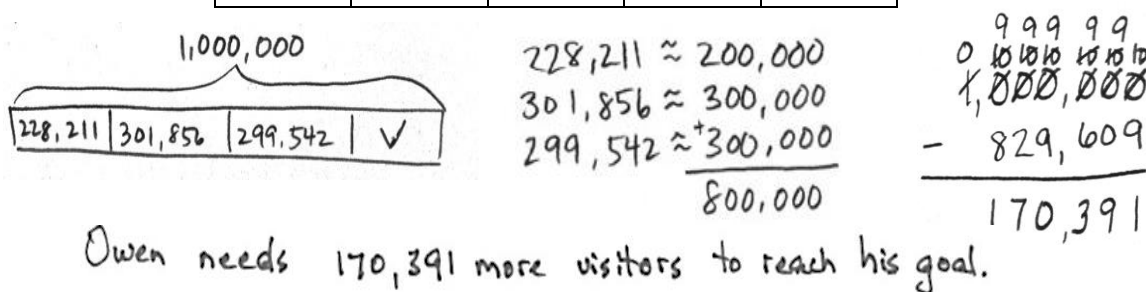 1,000,000
228,211 301,856 299,542 V
228,211 ≈ 200,000
301,856 ≈ 300,000
299,542 ≈ +300,000
800,000
9 9 9 9 9
0 10 10 10 10 10 10
1,000,000
- 829,609
170,391
Owen needs 170,391 more visitors to reach his goal.